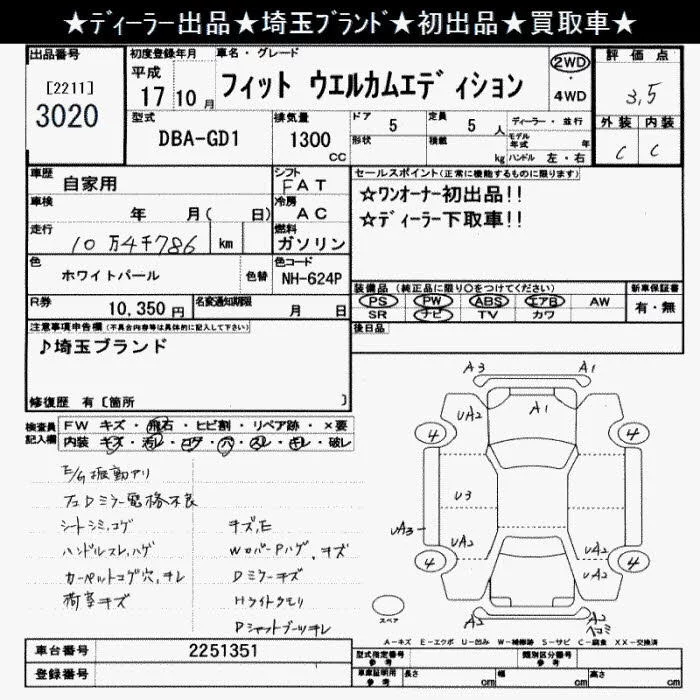 ★ディーラー出品★埼玉ブランド★初出品★買取車★
出品番号
[2211]
3020
初度登録年月
平成
17 10 月
車名・グレード
フィット ウエルカムエディション
2WD
・
4WD
評価点
3,5
外装 内装
C C
型式
DBA-GD1
排気量
1300
CC
ドア 5
形状
定員 5 人
積載 kg
ディーラー・並行
モデル年式 年
ハンドル 左・右
車歴
自家用
シフト
FAT
車検
年 月( 日)
冷房
AC
走行
10万4千786 km
燃料
ガソリン
色
ホワイトパール
色替
色コード
NH-624P
R券
10,350 円
名変通知期限
月 日
セールスポイント(正常に機能するものに限ります)
☆ワンオーナー初出品!!
☆ディーラー下取車!!
装備品(純正品に限り○をつけてください)
PS PW ABS エアB AW
SR ナビ TV カワ
新車保証書
有・無
後日品
注意事項申告欄(不具合内容等は具体的に記入して下さい)
♪埼玉ブランド
修復歴 有〔箇所 〕
検査員記入欄
FW キズ・飛石・ヒビ割・リペア跡・×要
内装 キズ・汚レ・コゲ・穴・スレ・キレ・破レ
E/G振動アリ
フェDミラー電格不良
シートシミ,コゲ
ハンドルスレ,ハゲ
カーペットコゲ穴,キレ
荷室キズ
キズ,E
WカバーPハゲ,キズ
Dミラーキズ
Hライトクモリ
Dシャフトブーツキレ
A3 A1
UA2 A1
4 4
U3
UA3
UA2 UA2
4 4
UA2 A2
A2 A2
ヘコミ
スペア
A-キズ E-エクボ U-凹み W-補修跡 S-サビ C-腐食 XX-交換済
車台番号
2251351
登録番号
型式指定番号
参考
類別区分番号
参考
車庫証明用
参考
長さ cm
幅 cm
高さ cm